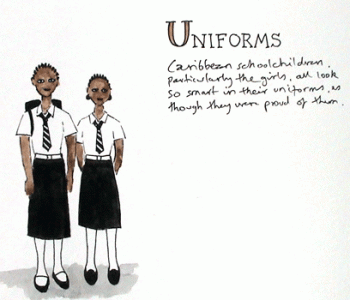 UNIFORMS
Caribbean schoolchildren,
particularly the girls, all look
so smart in their uniforms, as
though they were proud of them.